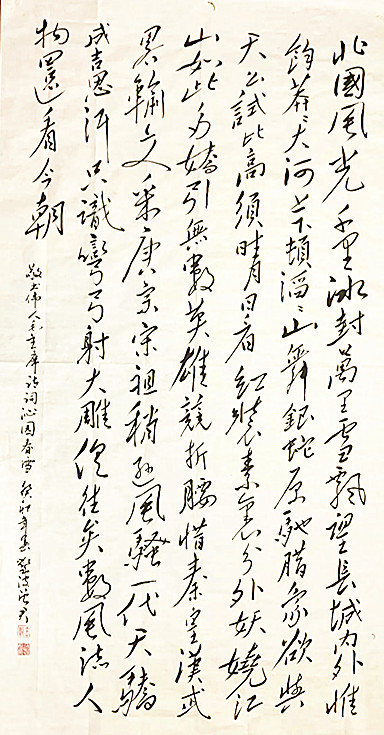 北國風光千里冰封萬里雪飄望長城內外惟
餘莽〻大河上下頓滔〻山舞銀蛇原馳腊象欲與
天公試比高須晴日看紅裝素裹分外妖嬈江
山如此多嬌引無數英雄競折腰惜秦皇漢武
畧輸文采唐宗宋祖稍遜風騷一代天驕
成吉思汗只識彎弓射大雕俱往矣數風流人
物還看今朝
敬書偉人毛主席詩詞沁園春雪 癸卯年